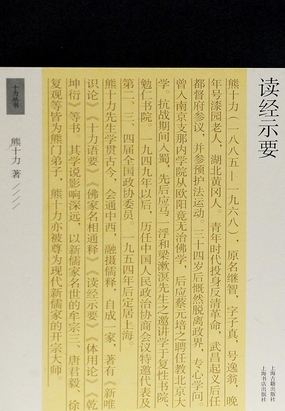 读经示要
熊十力(一八八五—一九六八),原名继智,字子真,号逸翁,晚
年号漆园老人,湖北黄冈人。青年时代投身反清革命,武昌起义后任
都督府参议,并参预护法运动。三十四岁后慨然脱离政界,专心学问,
曾入南京支那内学院从欧阳竟无治佛学,后应蔡元培之聘任教北京大
学。抗战期间入蜀,先后应马一浮和梁漱溟先生之邀讲学于复性书院、
勉仁书院。一九四九年以后,历任中国人民政治协商会议特邀代表及
第二、三、四届全国政协委员。一九五四年后定居上海。
熊十力先生学贯古今,会通中西,融摄儒释,自成一家,著有《新唯
识论》《十力语要》《佛家名相通释》《读经示要》《体用论》《乾
坤衍》等书,其学说影响深远,以新儒家名世的牟宗三、唐君毅、徐
复观等皆为熊门弟子,熊十力亦被尊为现代新儒家的开宗大师。
十力丛书
熊十力 著
上海古籍出版社
上海书店出版社